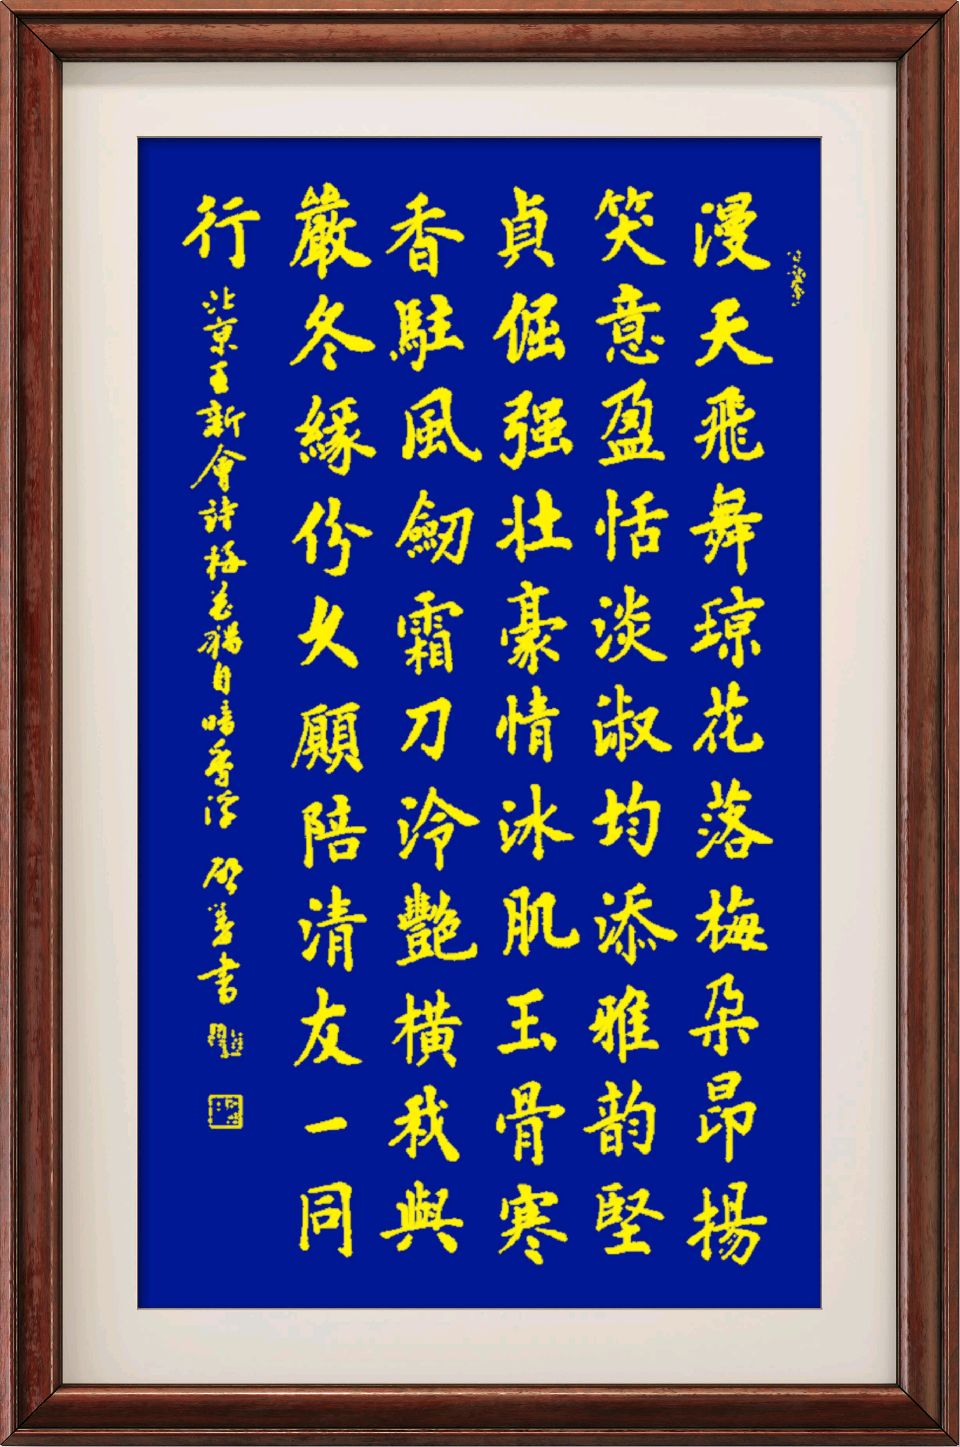 漫天飛舞琼花落梅朵昂揚
笑意盈恬淡淑均添雅韵堅
貞倔强壮豪情冰肌玉骨寒
香駐風劒霜刀泠艷橫我與
嚴冬緣份久願陪清友一同
行
北京王新會詩梅花獨自暗香浮 啟善书